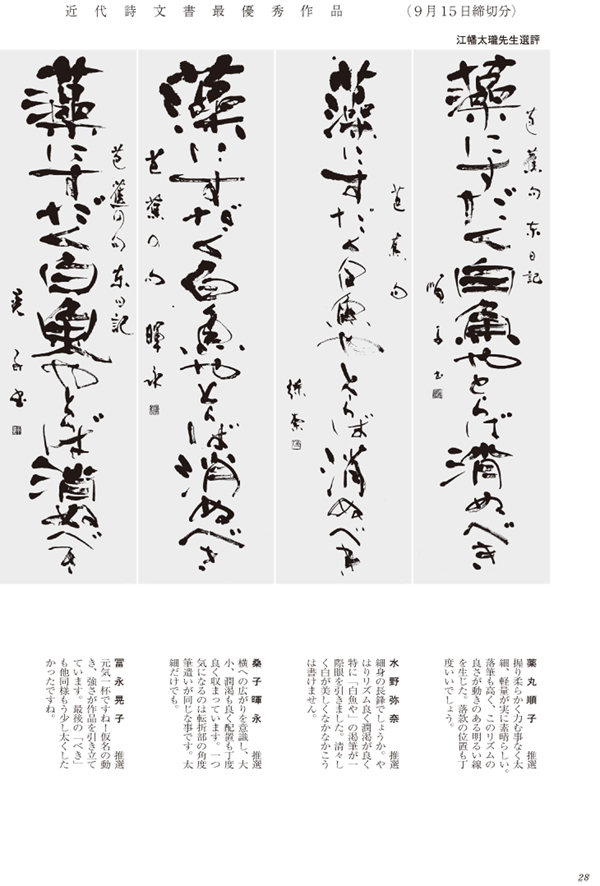 近代詩文書最優秀作品　（9月15日締切分）
江幡太瓏先生選評
芭蕉句 东日記
藻にすだく白魚やとらば消ぬべき
順子書
芭蕉句
藻にすだく白魚やとらば消ぬべき
芭蕉の句 暉永
藻にすだく白魚やとらば消ぬべき
芭蕉の句 东日記
藻にすだく白魚やとらば消ぬべき
晃子書
薬丸順子　推選
握り柔らかく力む事なく太
細、軽量が実に素晴らしい。
落筆も高く、このリズムの
良さが動きのある明るい線
を生じた。落款の位置も丁
度いいでしょう。
水野弥奈　推選
細身の長鋒でしょうか。や
はりリズム良く潤渇が良く
特に「白魚や」の渇筆が一
際眼を引きました。清々し
く白が美しくなかなかこう
は書けません。
桑子暉永　推選
横への広がりを意識し、大
小、潤渇も良く配置も丁度
良く収まっています。一つ
気になるのは転折部の角度
筆遣いが同じな事です。太
細だけでも。
冨永晃子　推選
元気一杯ですね！仮名の動
き、強さが作品を引き立て
ています。最後の「べき」
も他同様もう少し太くした
かったですね。
28